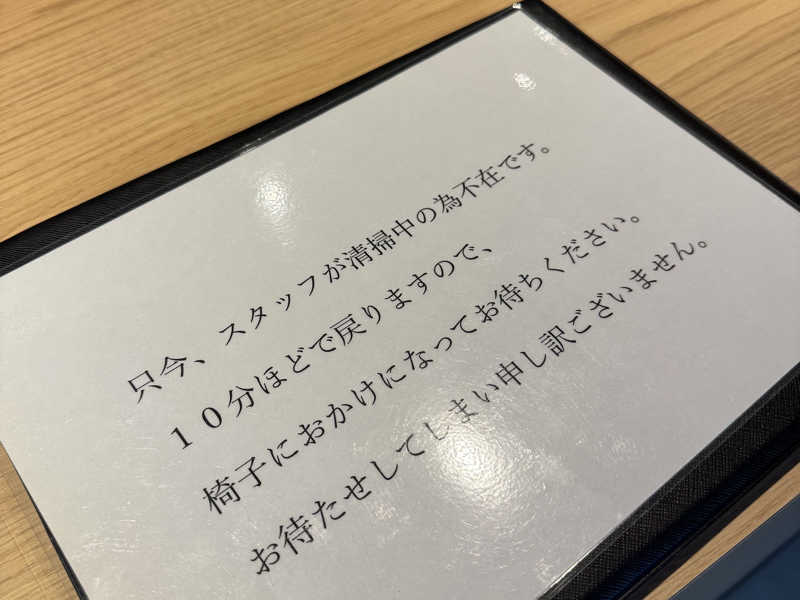 只今、スタッフが清掃中の為不在です。
１０分ほどで戻りますので、
椅子におかけになってお待ちください。
お待たせしてしまい申し訳ございません。